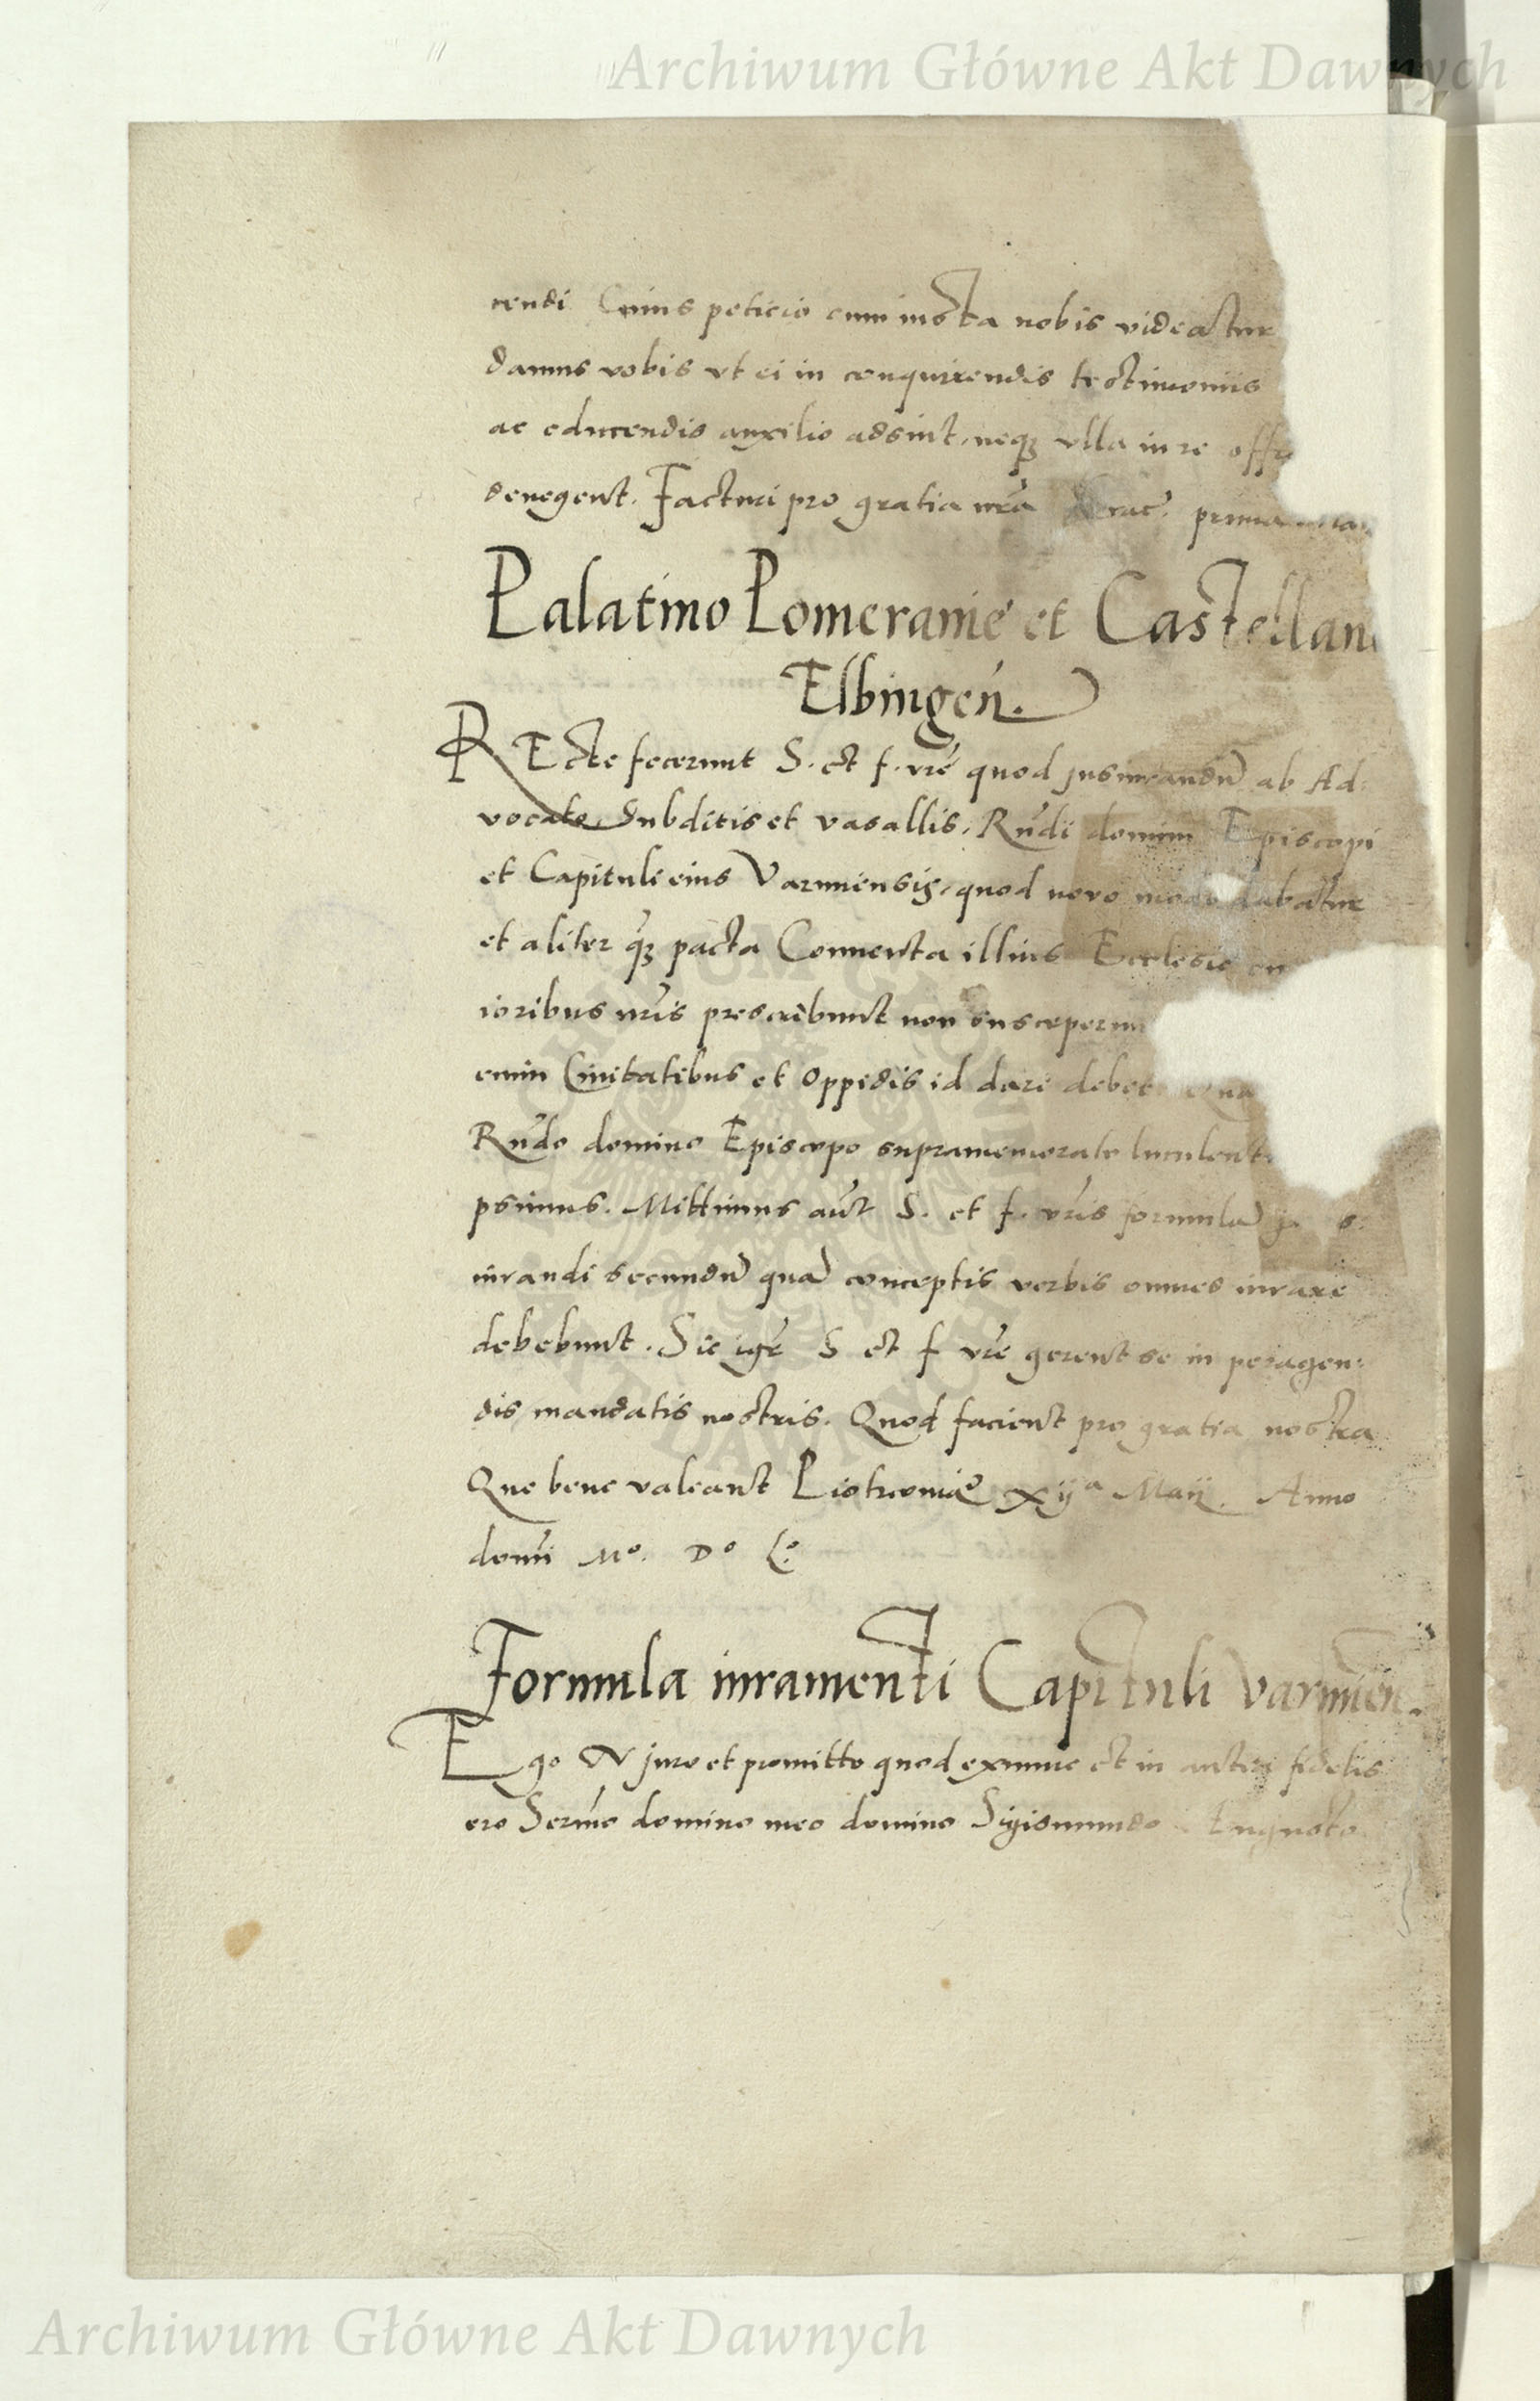 Archiwum Główne Akt Dawnych
cendi Cuius peticio cum iusta nobis videatur
damus vobis ut ei in conquirendis testimoniis
ac educendis auxilio adsint, neq3 ulla in re
denegent. Facturi pro gratia nrã
Palatino Pomeranie et Castellan
Elbingeń.
REcte fecerunt S. et f. vre quod jusiurandũ ab Ad:
vocato Subditis et vasallis, Rñdi domini Episcopi
et Capituli eius Varmiensis, quod novo modo dabatur
et aliter q̃3 pacta Conventa illius Ecclesie
ioribus nris prescribunt non susceperun
enim Civitatibus et Oppidis id dare debet
Rñdo domino Episcopo supramemorato luculent
psimus. Mittimus aũt S. et f. vris formulã
iurandi secundũ quã conceptis verbis omnes iurare
debebunt. Sic igr̃ S et f vre gerent se in peragen:
dis mandatis nostris. Quod facient pro gratia nostra
Que bene valeant Piotrcoviae xijª Maij. Anno
domi Mº. Dº Lº
Formula iuramenti Capituli varmien.
Ego N juro et promitto quod exnunc et in antea fidelis
ero Sermo domino meo domino Sigismundo Augusto
Archiwum Główne Akt Dawnych